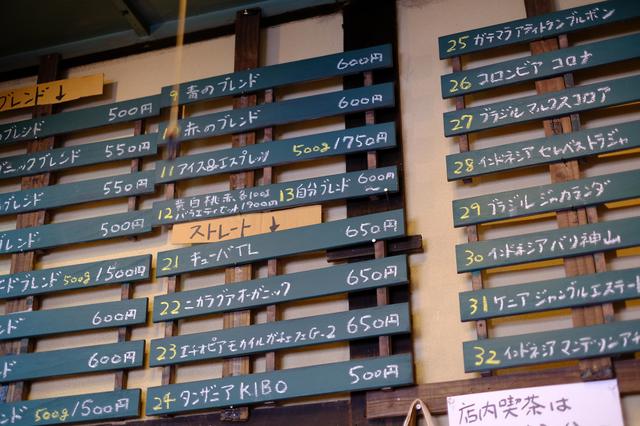 ブレンド ↓
ブレンド 500円
ニックブレンド 550円
ブレンド 550円
ブレンド 500円
ブレンド 500g/1500円
ンド 600円
ンド 600円
ンド 500g/1500円
9 青のブレンド 600円
赤のブレンド 600円
11 アイス&エスプレッソ 500g/1750円
12 黄白桃赤各100g
バラエティセット1900円
13 自分ブレンド 600円〜
ストレート ↓
21 キューバTL 650円
22 ニカラグアオーガニック 650円
23 エチオピアモカイルガチェフェG-2 650円
24 タンザニアKIBO 500円
25 ガテマラアティトランブルボン
26 コロンビア コロナ
27 ブラジル マルクスコロア
28 インドネシア セレベストラジャ
29 ブラジル ジャカランダ
30 インドネシア バリ神山
31 ケニア ジャンブルエステート
32 インドネシア マンデリン
店内喫茶は